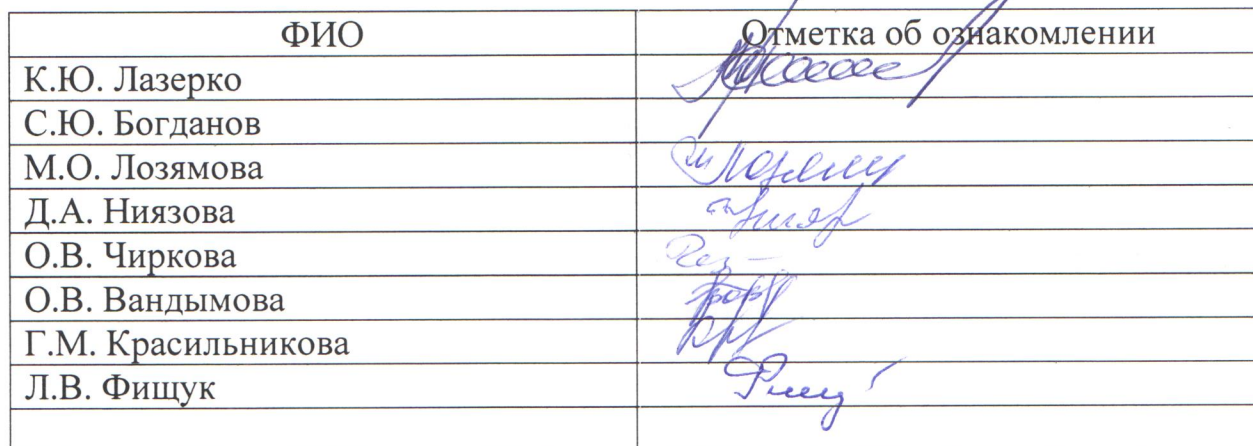 ФИО Отметка об ознакомлении
К.Ю. Лазерко
С.Ю. Богданов
М.О. Лозямова
Д.А. Ниязова
О.В. Чиркова
О.В. Вандымова
Г.М. Красильникова
Л.В. Фищук